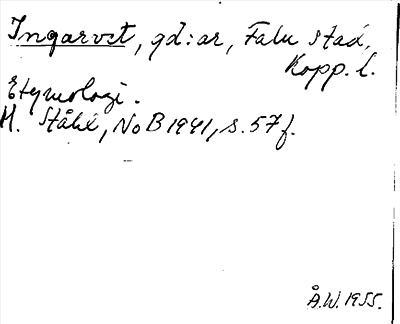 Ingarvet, gd:ar, Falu stad,
Kopp. l.
Etymologi.
H. Ståhl, NoB 1941, s. 57 f.
Å.W. 1955.